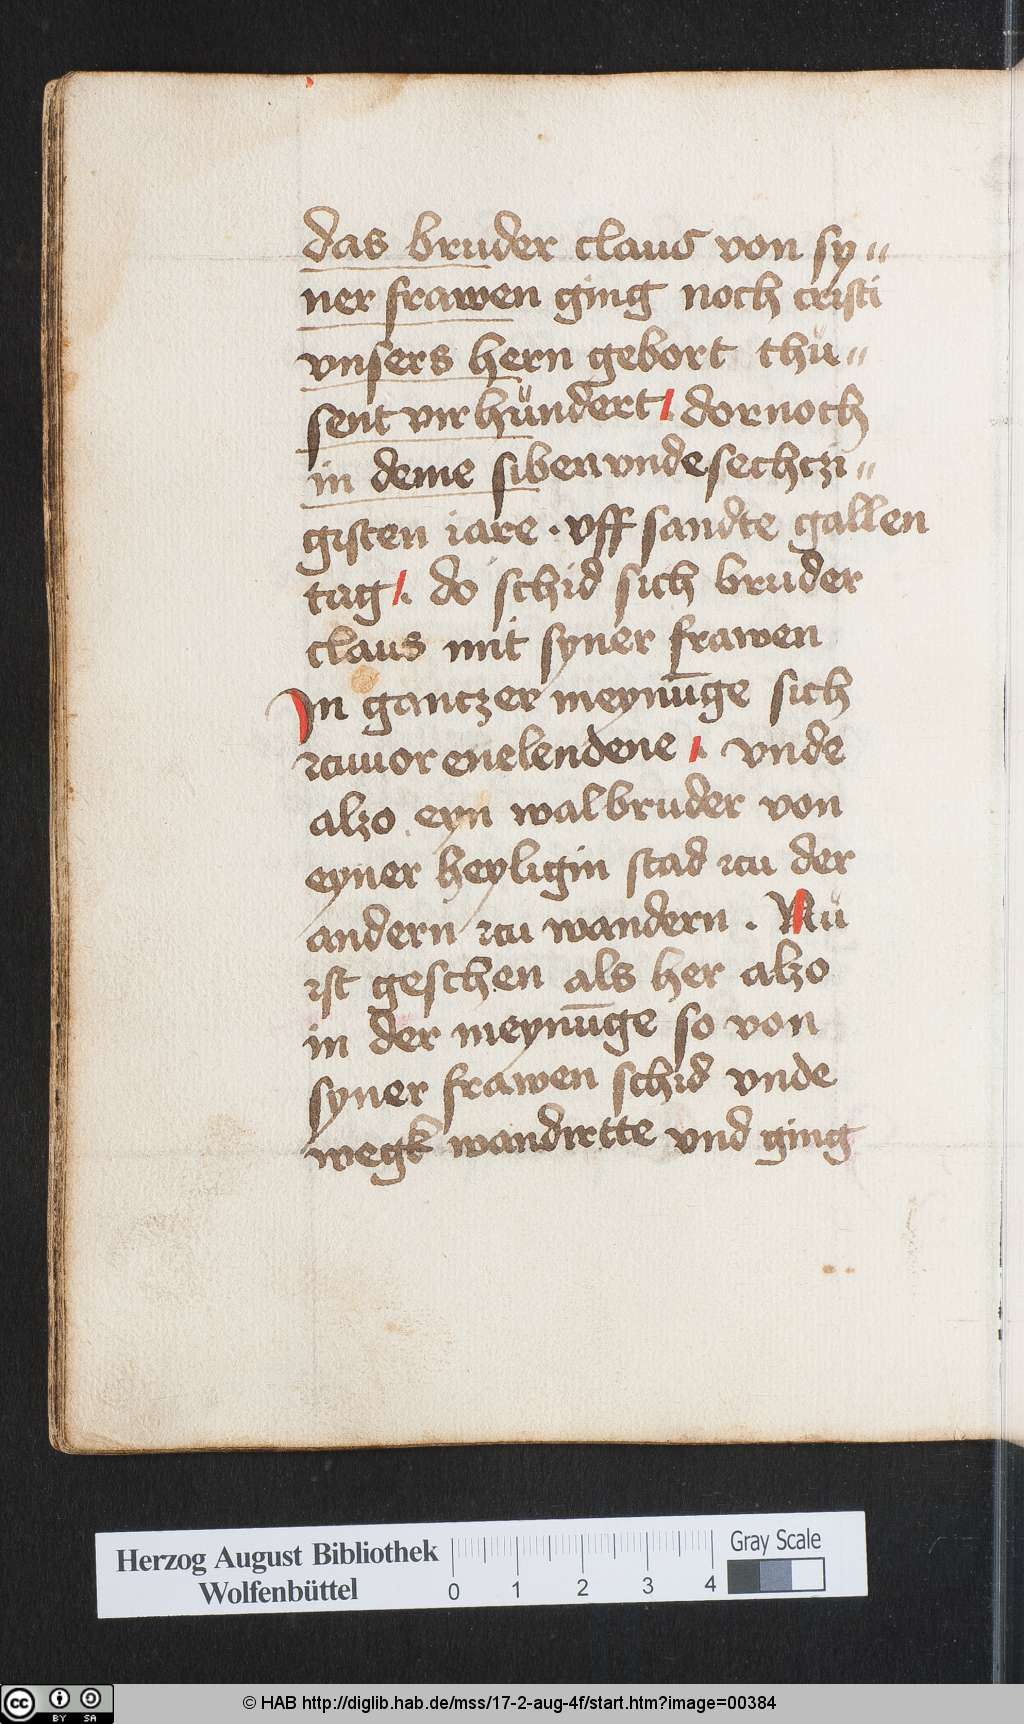 das bruder claus von sy〃
ner frawen ging noch cristi
vnsers hern gebort thu〃
sent vir hündert / dornoch
in deme siben vnde sechczi〃
gisten iare · vff sandte gallen
tag /. do schid sich bruder
claus mit syner frawen
In gantzer meynūge sich
zcuuor enelendene /. vnde
alzo eyn walbruder von
eyner heyligin stad zcu der
andern zcu wandern . Nü
ist geschen als her alzo
in der meynūge so von
syner frawen schid vnde
wegk wandirtte vnd ging
Herzog August Bibliothek
Wolfenbüttel
0 1 2 3 4
Gray Scale
cc BY SA
© HAB http://diglib.hab.de/mss/17-2-aug-4f/start.htm?image=00384